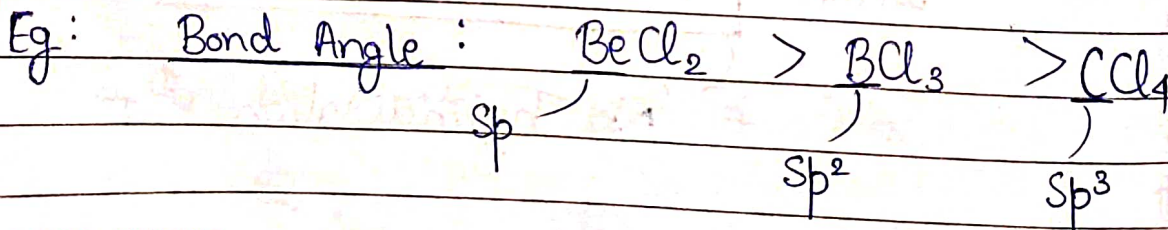 Eg: Bond Angle: BeCl₂ > BCl₃ > CCl₄
Sp Sp² Sp³